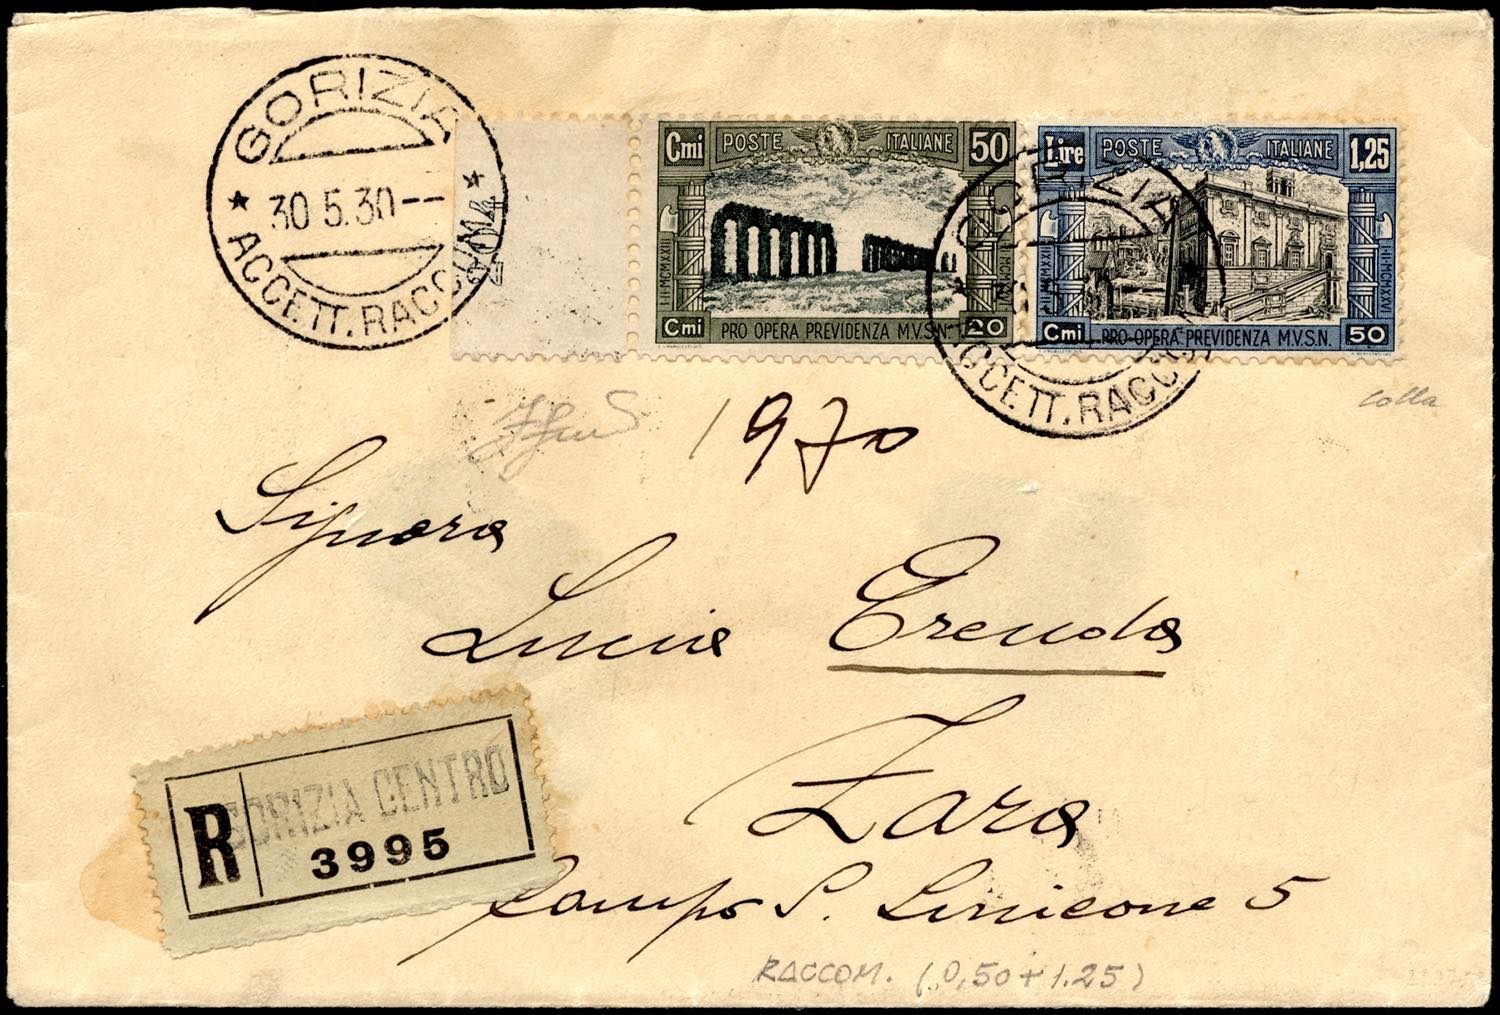 GORIZIA
30 5.30
ACCETT. RACCOM.
Cmi POSTE ITALIANE 50
Cmi PRO OPERA PREVIDENZA M.V.S.N. 20
Lire POSTE ITALIANE 1,25
Cmi PRO OPERA PREVIDENZA M.V.S.N. 50
GORIZIA
ACCETT. RACCOM.
colla
1970
Signora
Lucia
Zara
Campo S.
5
R GORIZIA CENTRO
3995
RACCOM. (0,50+1.25)